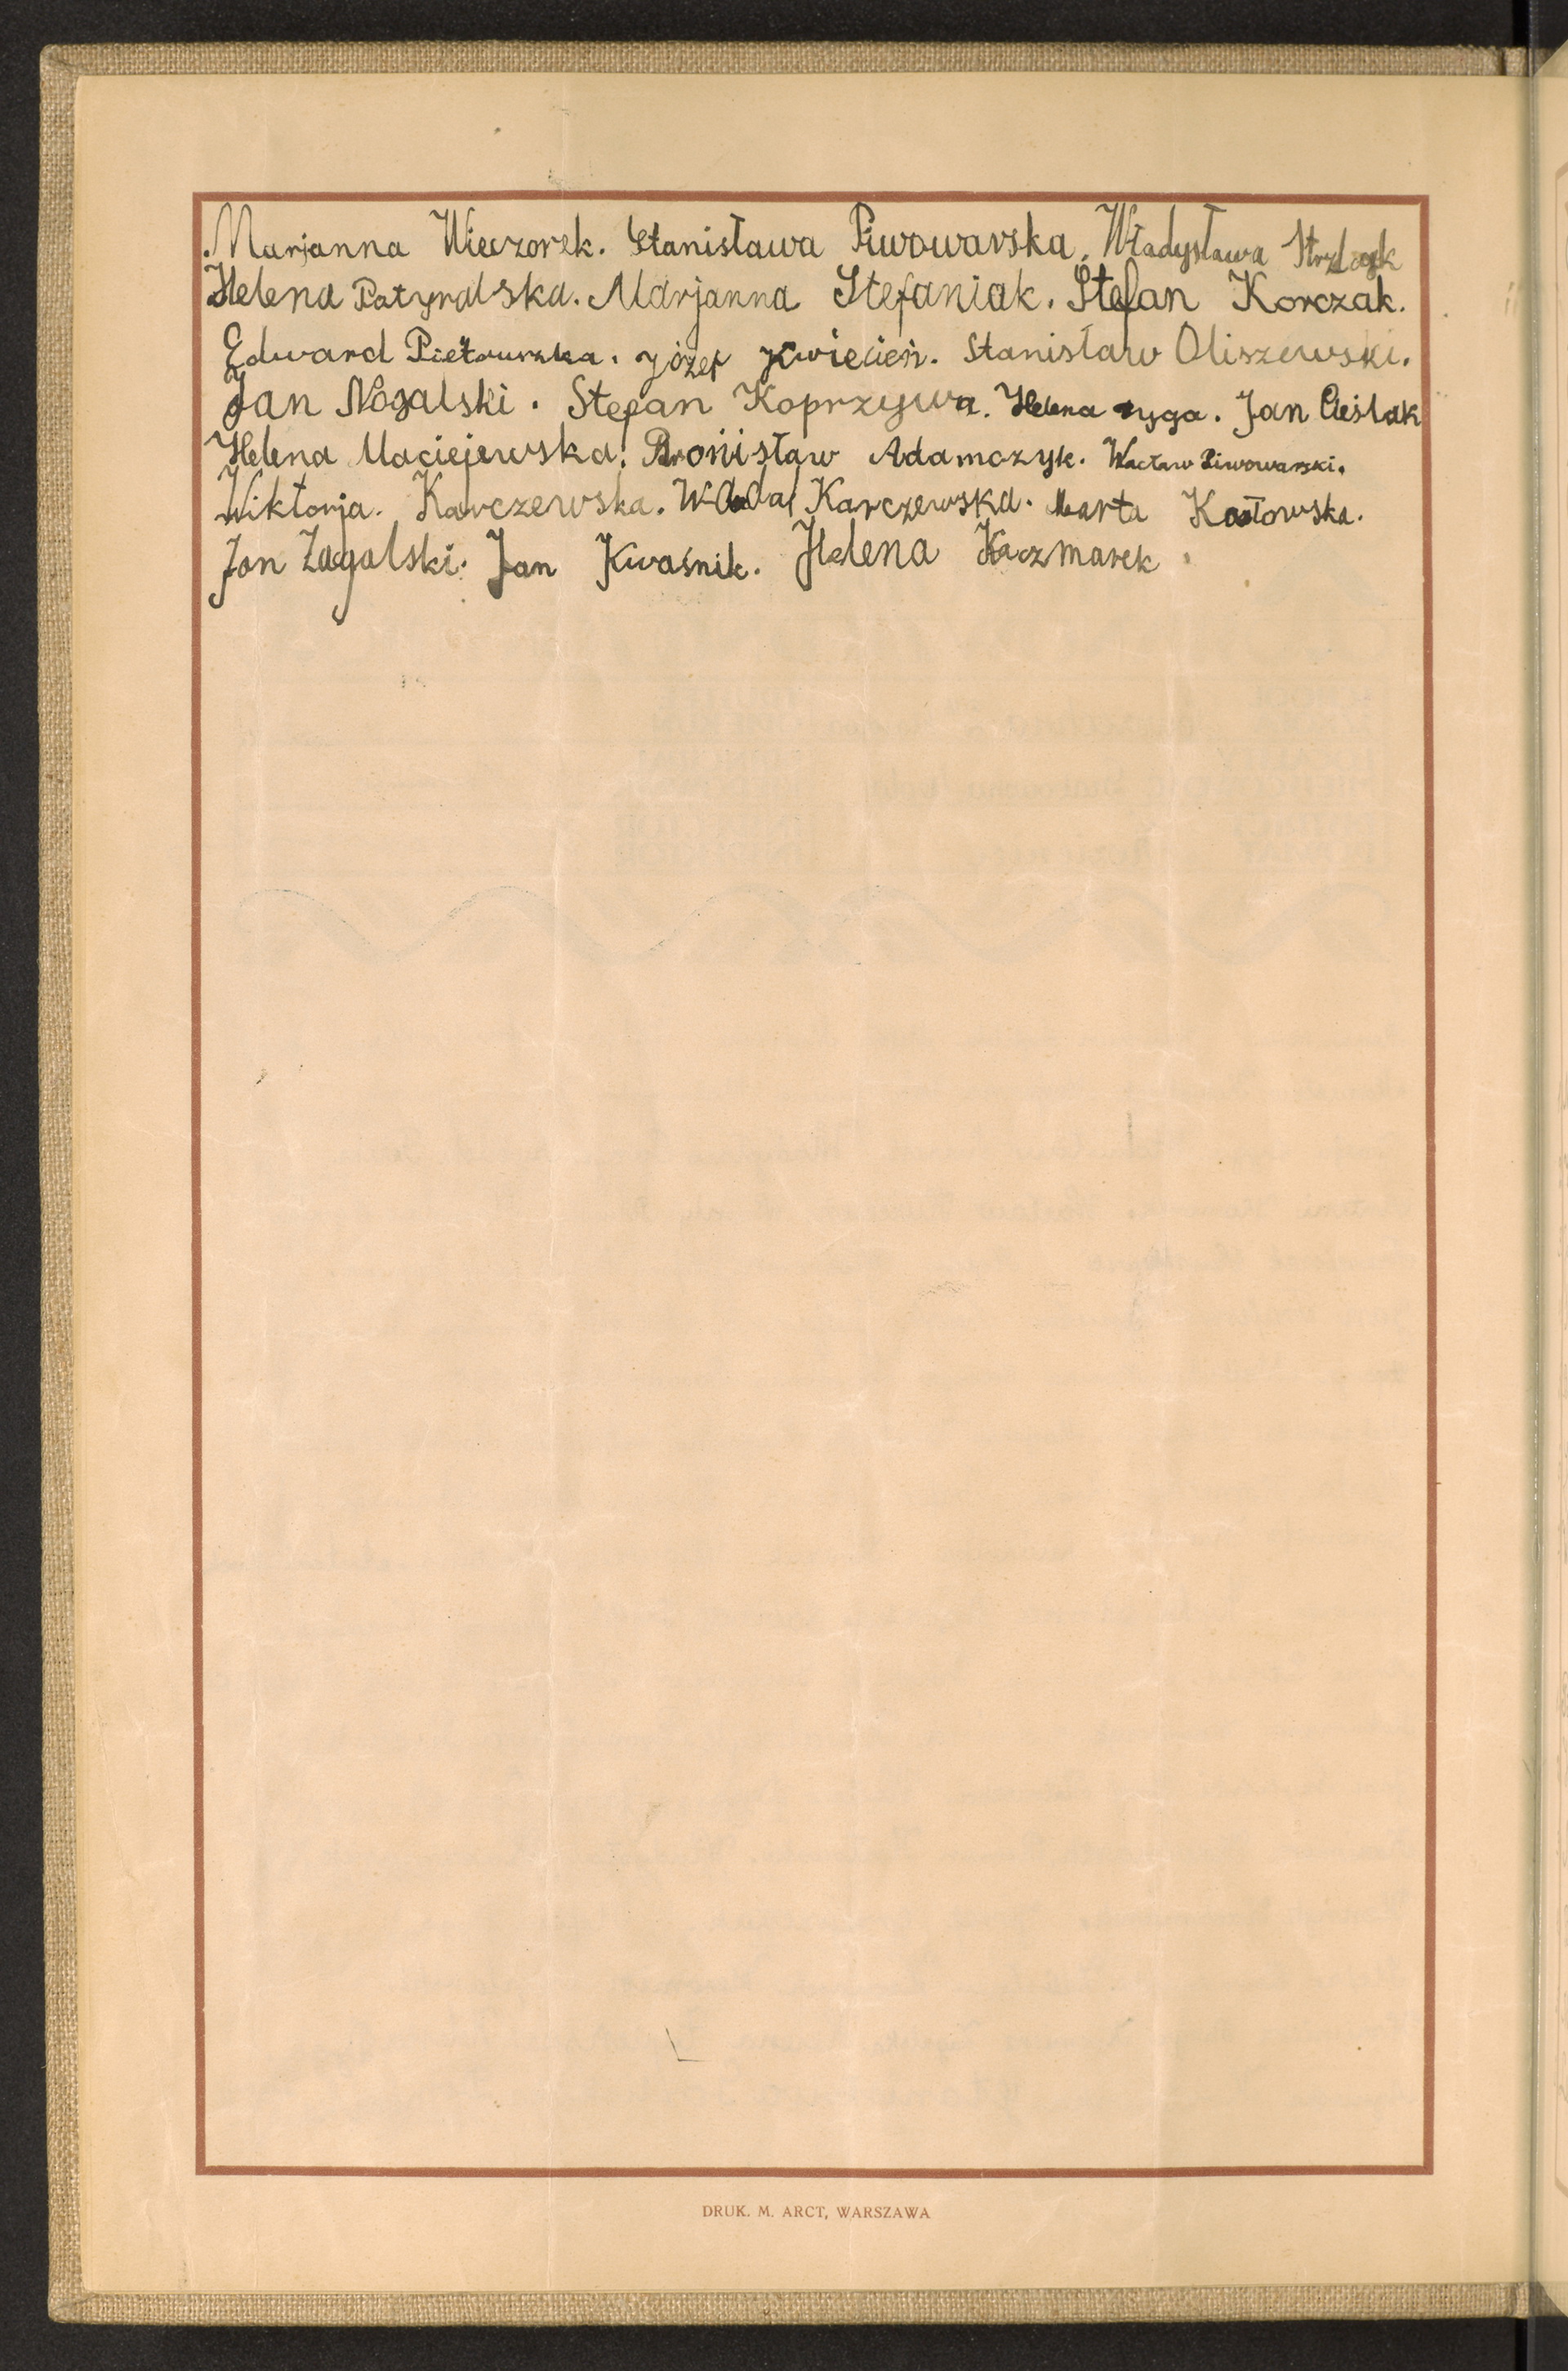 Marjanna Wieczorek. Stanisława Piwowarska. Władysława
Helena Patyralska. Marjanna Stefaniak. Stefan Korczak.
Edward Pietruszka. Józef Kwiecień. Stanisław Oliszewski.
Jan Nogalski. Stefan Koprzywa. Helena Ryga. Jan Cieślak
Helena Maciejewska. Bronisław Adamczyk. Wacław Piwowarski.
Wiktorja. Karczewska. Karczewska. Marta Kostowska.
Jan Zagalski. Jan Kwaśnik. Helena Kaczmarek.
DRUK. M. ARCT, WARSZAWA